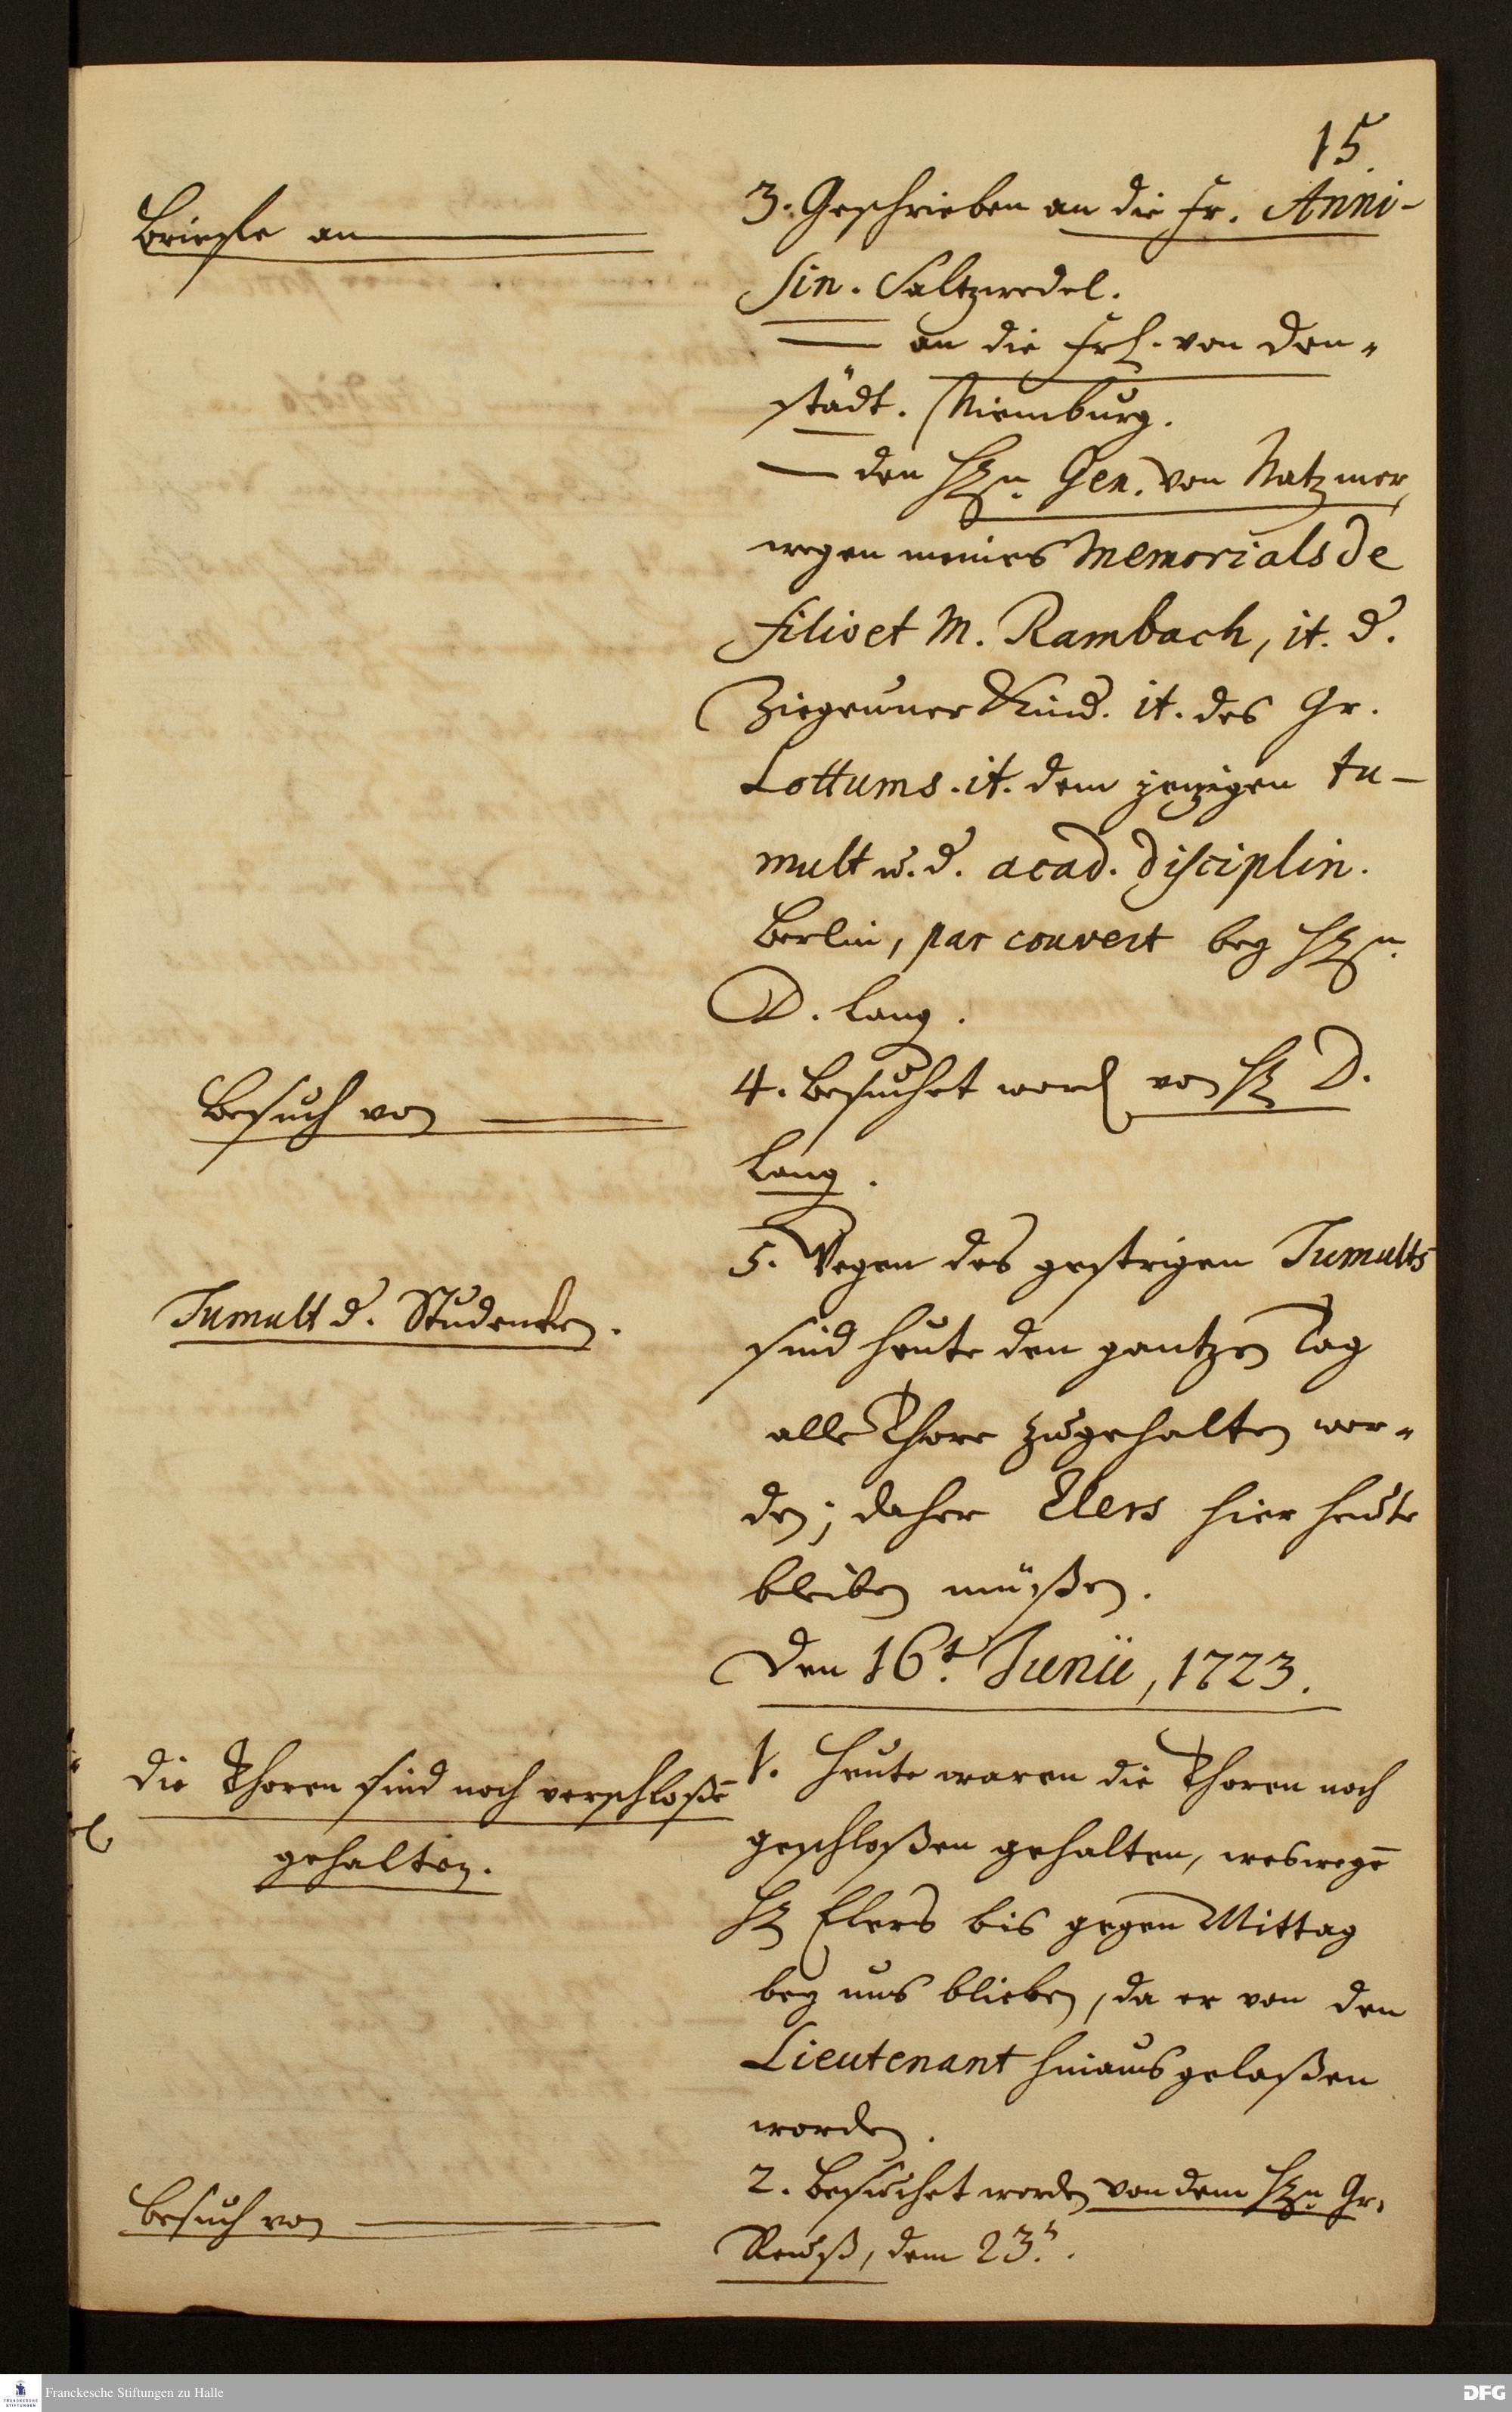 15.
Brieffe an
3. Geschrieben an die Fr. Anni-
sin. Saltzwedel.
— an die Frl. von Den-
städt. Niemburg.
— den Hrn. Gen. von Natzmer,
wegen meines Memorials de
filio et M. Rambach, it. d.
Ziegeuner Kind. it. des Gr.
Lottums. it. dem jetzigen tu-
mult w. d. acad. disciplin.
Berlin, par couvert bey Hrn.
D. Lang.
Besuch von
4. Besuchet word von H D.
Lang.
Tumult d. Studenten.
5. Wegen des gestrigen Tumults
sind heute den gantzen Tag
alle Thore zugehalten wor-
den; daher Elers hier heute
bleiben müßen.
Den 16t. Junii, 1723.
die Thoren sind noch verschloße
gehalten.
1. Heute waren die Thoren noch
geschloßen gehalten, weswege
H Elers bis gegen Mittag
bey uns blieben, da er von den
Lieutenant hinaus gelaßen
worden.
Besuch von
2. Besuchet worden von dem Hrn. Gr.
Reuß, dem 23.t.
Franckesche Stiftungen zu Halle
DFG